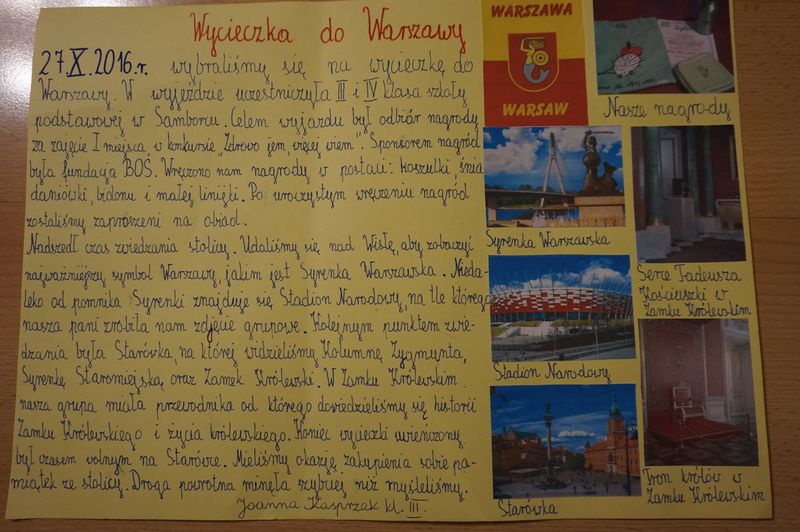 Wycieczka do Warszawy
27.X.2016.r. wybraliśmy się na wycieczkę do
Warszawy. W wyjeździe uczestniczyła III i IV klasa szkoły
podstawowej w Samborcu. Celem wyjazdu był odbiór nagrody
za zajęcie I miejsca w konkursie "Zdrowo jem, więcej wiem". Sponsorem nagród
była fundacja BOŚ. Wręczono nam nagrody w postaci: koszulki, śnia
daniówki, bidonu i małej linijki. Po uroczystym wręczeniu nagród
zostaliśmy zaproszeni na obiad.
Nadszedł czas zwiedzania stolicy. Udaliśmy się nad Wisłę, aby zobaczyć
najważniejszy symbol Warszawy, jakim jest Syrenka Warszawska. Nieda-
leko od pomnika Syrenki znajduje się Stadion Narodowy, na tle którego
nasza pani zrobiła nam zdjęcie grupowe. Kolejnym punktem zwie-
dzania była Starówka, na której widzieliśmy Kolumnę Zygmunta,
Syrenkę Staromiejską oraz Zamek Królewski. W Zamku Królewskim
nasza grupa miała przewodnika od którego dowiedzieliśmy się historii
Zamku Królewskiego i życia królewskiego. Koniec wycieczki uwieńczony
był czasem wolnym na Starówce. Mieliśmy okazję zakupienia sobie pa-
miątek ze stolicy. Droga powrotna minęła szybciej niż myśleliśmy.
Joanna Kasprzak kl. III.
WARSZAWA
WARSAW
Nasze nagrody
Syrenka Warszawska
Serce Tadeusza
Kościuszki w
Zamku Królewskim
Stadion Narodowy
Starówka
Tron królów w
Zamku Królewskim